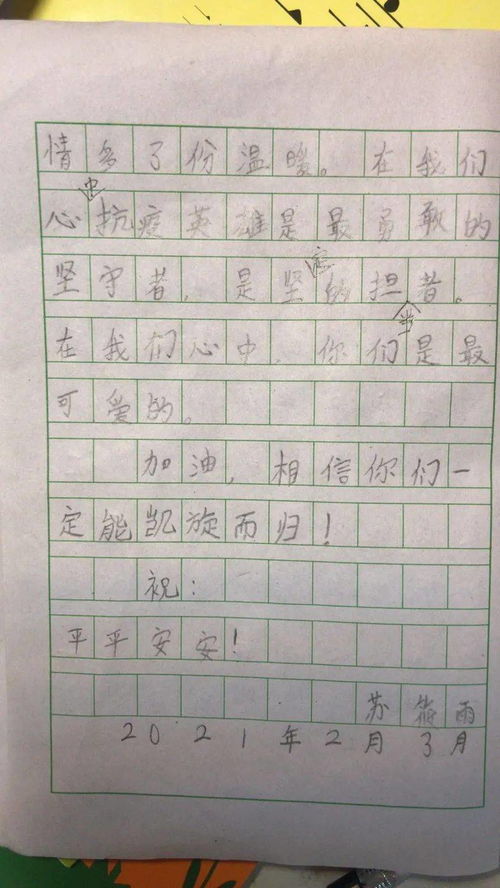 情多了份温暖。在我们
心中抗疫英雄是最勇敢的
坚守者，是坚定的担当者。
在我们心中，你们是最
可爱的。
加油，相信你们一
定能凯旋而归！
祝：
平平安安！
苏筱雨
2021年2月3月